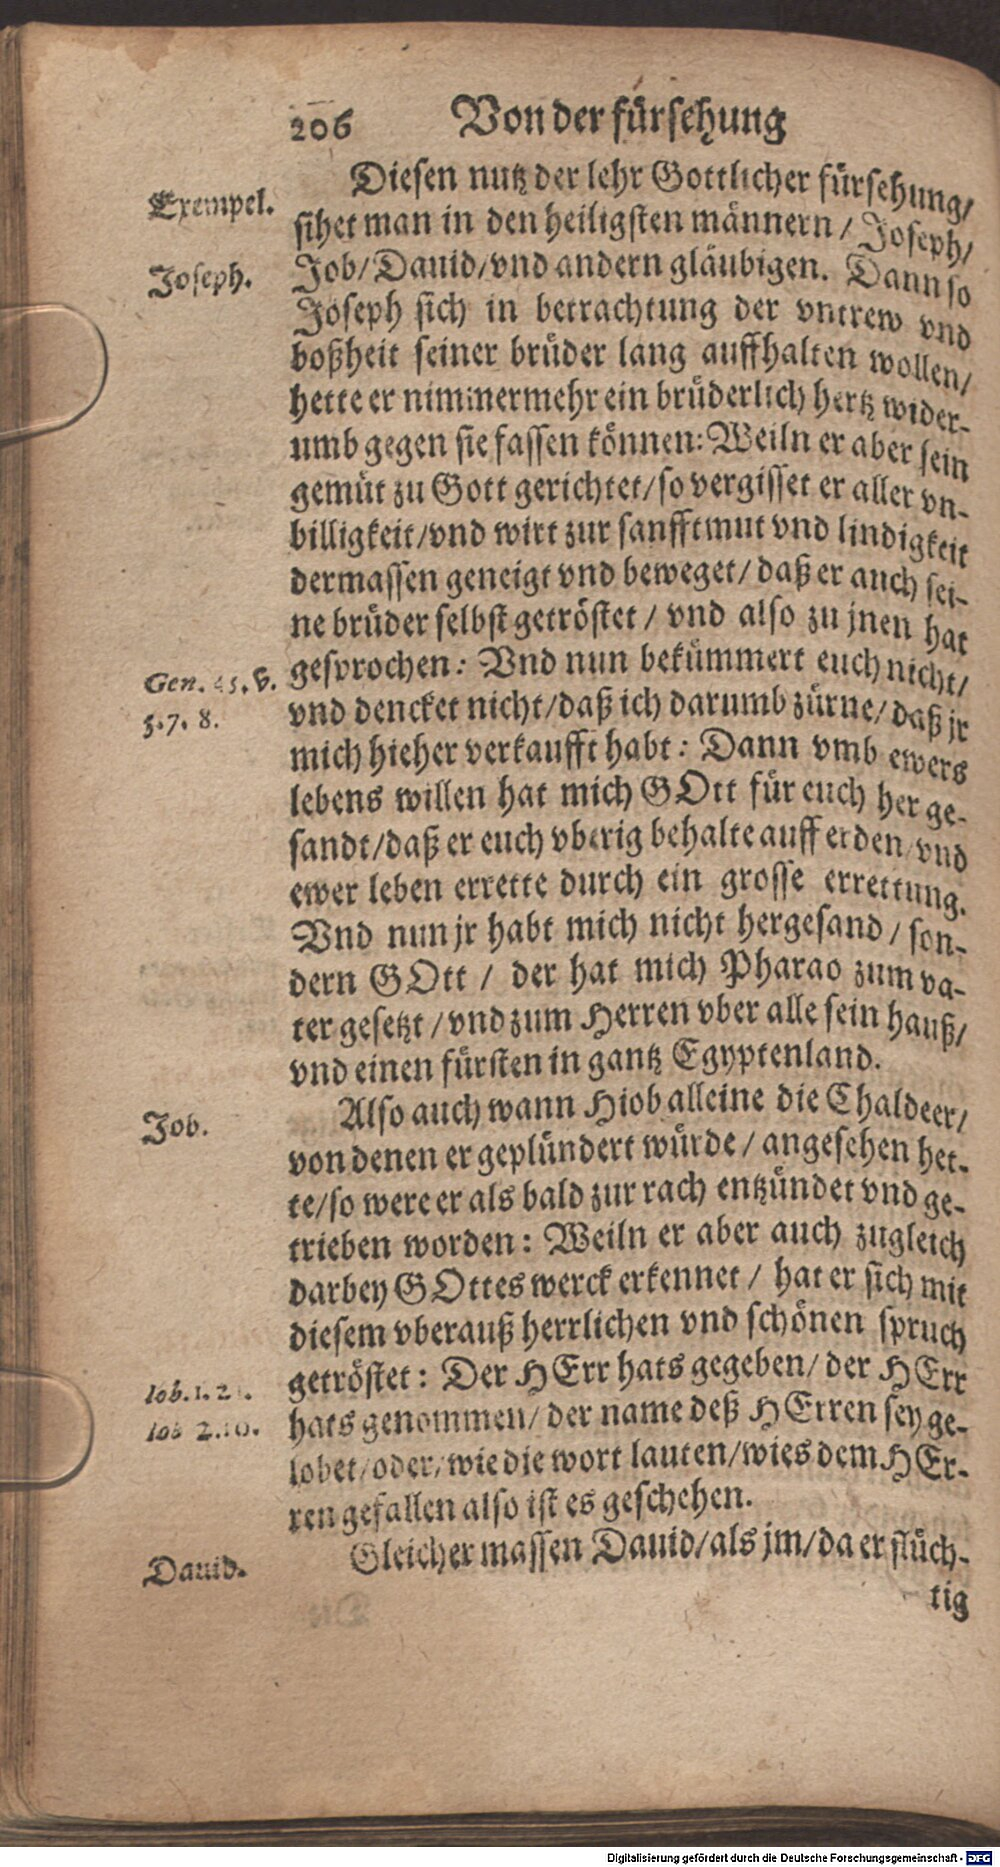 206 Von der fürsehung
Diesen nutz der lehr Gottlicher fürsehung/
Exempel.
sihet man in den heiligsten männern / Joseph/
Joseph.
Job/ Dauid/ vnd andern gläubigen. Dann so
Joseph sich in betrachtung der vntrew vnd
boßheit seiner brüder lang auffhalten wollen/
hette er nimmermehr ein brüderlich hertz wider-
umb gegen sie fassen können: Weiln er aber sein
gemüt zu Gott gerichtet/ so vergisset er aller vn-
billigkeit/ vnd wirt zur sanfftmut vnd lindigkeit
dermassen geneigt vnd beweget/ daß er auch sei-
ne brüder selbst getröstet / vnd also zu jnen hat
Gen. 45. V.
gesprochen: Vnd nun bekümmert euch nicht/
5. 7. 8.
vnd dencket nicht/ daß ich darumb zürne/ daß jr
mich hieher verkaufft habt: Dann vmb ewers
lebens willen hat mich GOtt für euch her ge-
sandt/ daß er euch vberig behalte auff erden/ vnd
ewer leben errette durch ein grosse errettung.
Vnd nun jr habt mich nicht hergesand / son-
dern GOtt / der hat mich Pharao zum va-
ter gesetzt / vnd zum Herren vber alle sein hauß/
vnd einen fürsten in gantz Egyptenland.
Job.
Also auch wann Hiob alleine die Chaldeer/
von denen er geplündert würde / angesehen het-
te/ so were er als bald zur rach entzündet vnd ge-
trieben worden: Weiln er aber auch zugleich
darbey GOttes werck erkennet / hat er sich mit
diesem vberauß herrlichen vnd schönen spruch
Iob. 1. 21.
getröstet: Der HErr hats gegeben/ der HErr
Iob 2.10.
hats genommen/ der name deß HErren sey ge-
lobet/ oder/ wie die wort lauten/ wies dem HEr-
ren gefallen also ist es geschehen.
Dauid.
Gleicher massen Dauid/ als jm/ da er flüch-
tig
Digitalisierung gefördert durch die Deutsche Forschungsgemeinschaft - DFG